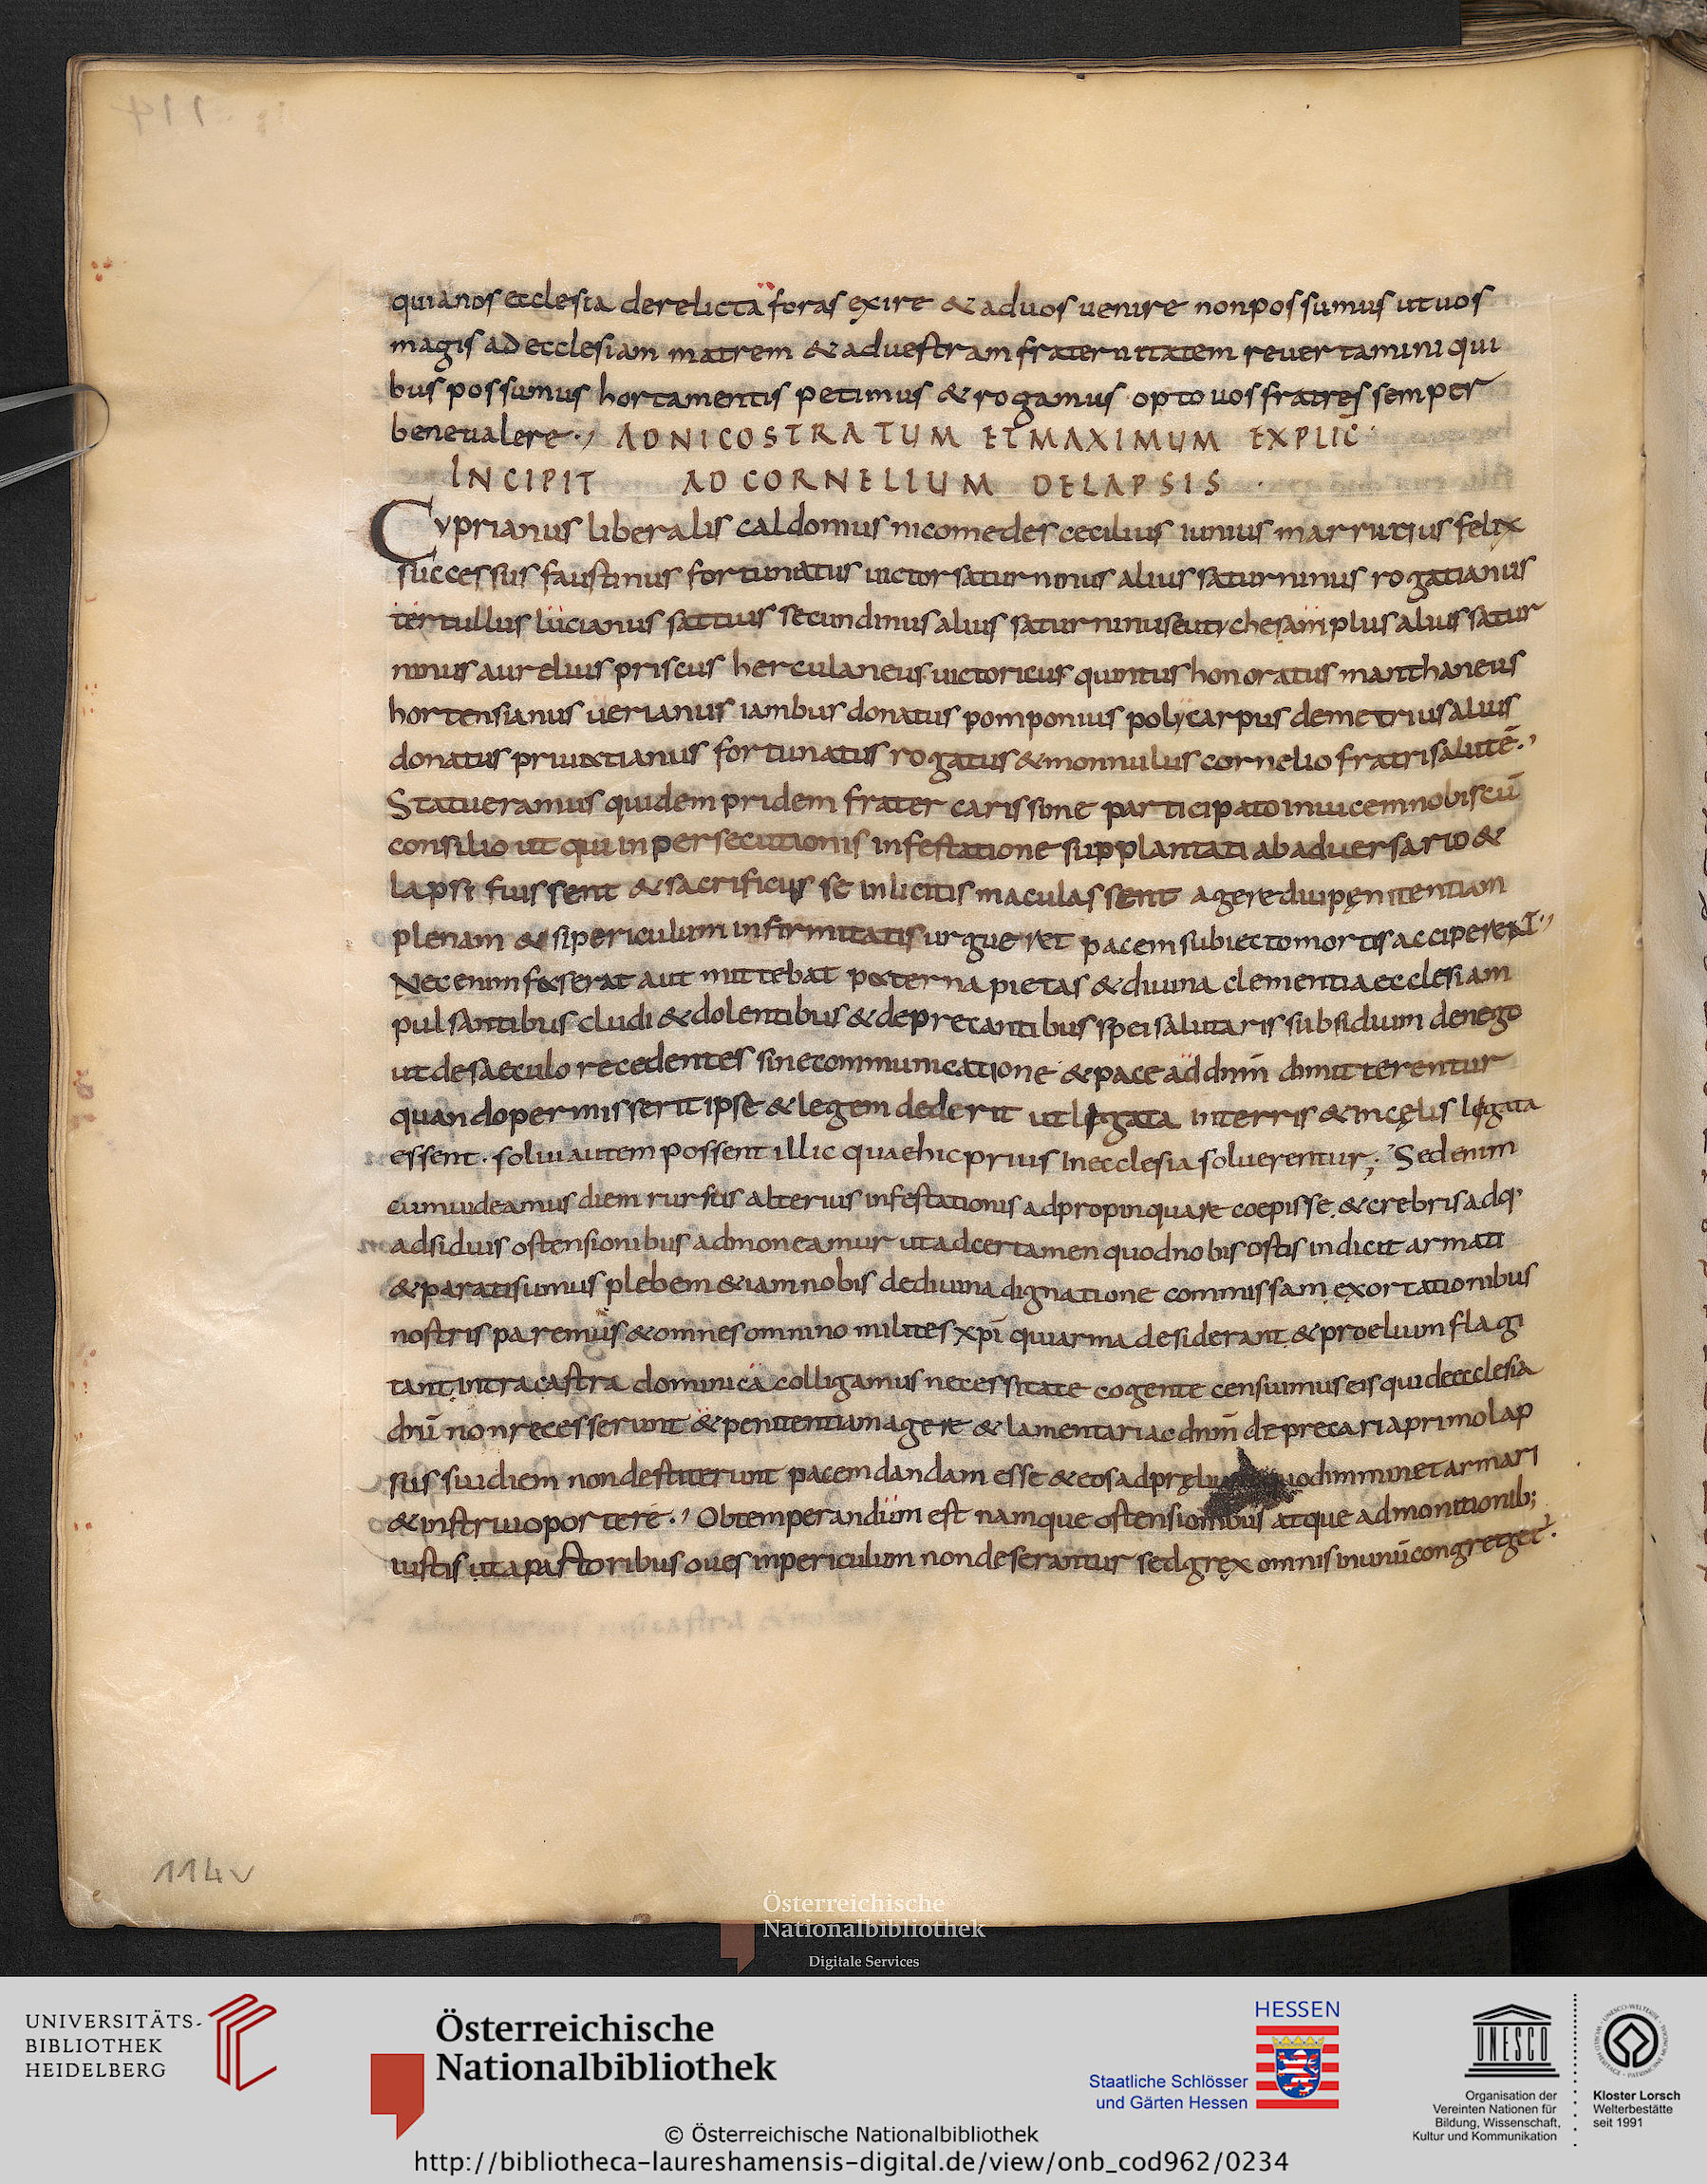 114
quia nos ecclesia derelicta foras exire & ad uos uenire non possumus ut uos
magis ad ecclesiam matrem & ad uestram fraternitatem reuertamini qui
bus possumus hortamentis petimus & rogamus opto uos fratres semper
bene ualere ·, AD NICOSTRATUM ET MAXIMUM EXPLIC̄ ·
INCIPIT AD CORNELIUM DE LAPSIS ·
Cyprianus liberalis caldonius nicomedes cecilius iunius marrutius felix
successus faustinus fortunatus uictor saturninus alius saturninus rogatianus
tertullus lucianus sattius secundinus alius saturninus eutyches amplus alius satur
ninus aurelius priscus herculaneus uictoricus quintus honoratus manthaneus
hortensianus uerianus iambus donatus pomponius polycarpus demetrius alius
donatus priuatianus fortunatus rogatus & monnulus cornelio fratri salutē ·,
Statueramus quidem pridem frater carissime participato inuicem nobiscū
consilio ut qui in persecutionis infestatione supplantati ab aduersario &
lapsi fuissent & sacrificiis se inlicitis maculassent agere diu pęnitentiam
plenam & si periculum infirmitatis urgueret pacem sub icto mortis acciperent ·,
Nec enim fas erat aut mittebat paterna pietas & diuina clementia ecclesiam
pulsantibus cludi & dolentibus & deprecantibus spei salutaris subsidium denego
ut de saeculo recedentes sine communicatione & pace ad dnm̄ dimitterentur
quando permisserit ipse & legem dederit ut ligata in terris & in cęlis ligata
essent · solui autem possent illic quae hic prius in ecclesia soluerentur; Sed enim
cum uideamus diem rursus alterius infestationis adpropinquare coepisse & crebris adq·
adsiduis ostensionibus admoneamur ut ad certamen quod nobis ostis indicit armati
& parati sumus plebem etiam nobis de diuina dignatione commissam exortationibus
nostris paremus & omnes omnino milites xpī qui arma desiderant & proelium flagi
tant intra castra dominica colligamus necessitate cogente censuimus eis qui de ecclesia
dnī non recesserunt & penitentiam agere & lamentari ac dnm̄ deprecari a primo lap
sus sui diem non destiterunt pacem dandam esse & eos ad pręlium quod imminet armari
& instrui oportere ·, Obtemperandum est namque ostensionibus atque admonitionib;
iustis ut a pastoribus oues in periculum non deserantur sed grex omnis in unū congreget ·
114v
Österreichische
Nationalbibliothek
Digitale Services
UNIVERSITÄTS-
BIBLIOTHEK
HEIDELBERG
Österreichische
Nationalbibliothek
HESSEN
Staatliche Schlösser
und Gärten Hessen
UNESCO
Organisation der
Vereinten Nationen für
Bildung, Wissenschaft,
Kultur und Kommunikation
Kloster Lorsch
Welterbestätte
seit 1991
© Österreichische Nationalbibliothek
http://bibliotheca-laureshamensis-digital.de/view/onb_cod962/0234